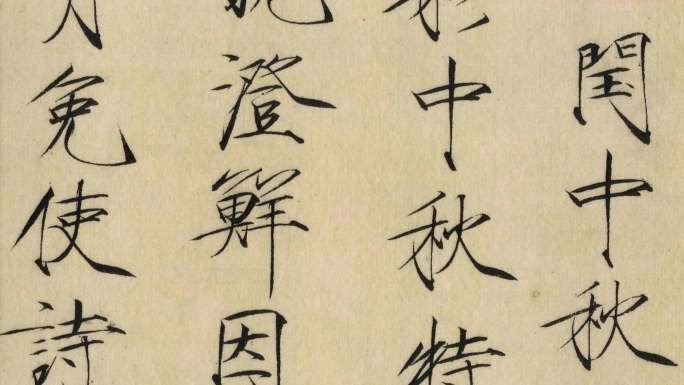 閏中秋
中秋特
澄鮮因
免使詩